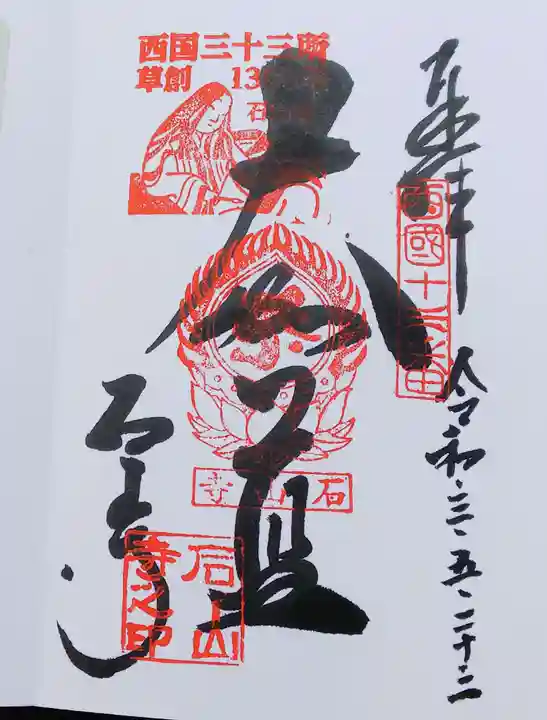 奉拝
西國十三番
令和三・五・二十二
西国三十三所
草創 13
石
大伽藍
石山寺
石山寺
石山寺之印